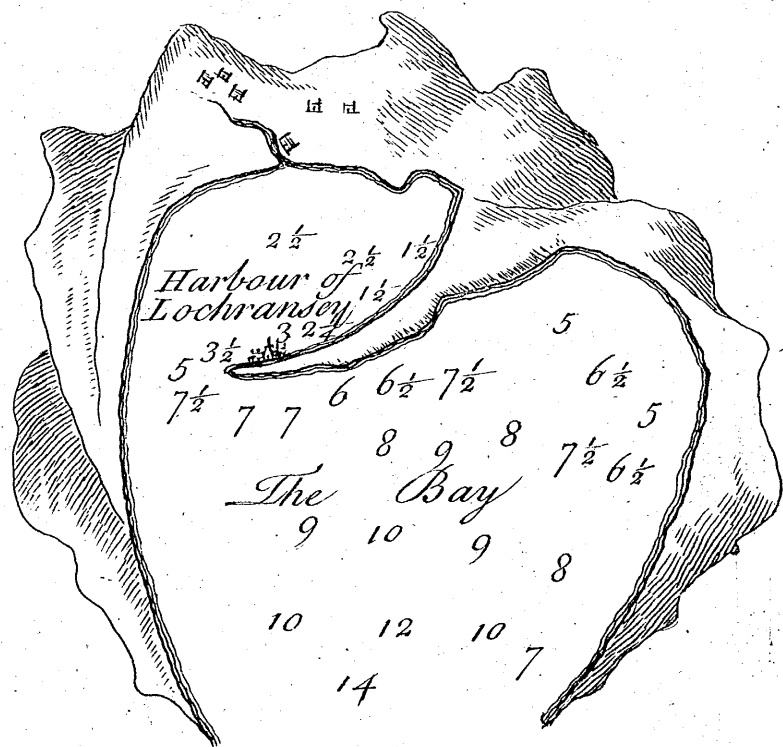 2 1/2
2 1/2 1 1/2
Harbour of 1 1/2
Lochransey
3 1/2 3 2 1/2
5
5
7 1/2 7 7 6 6 1/2 7 1/2 6 1/2
5
8 9 8 7 1/2 6 1/2
The Bay
9 10 9 8
10 12 10
7
14